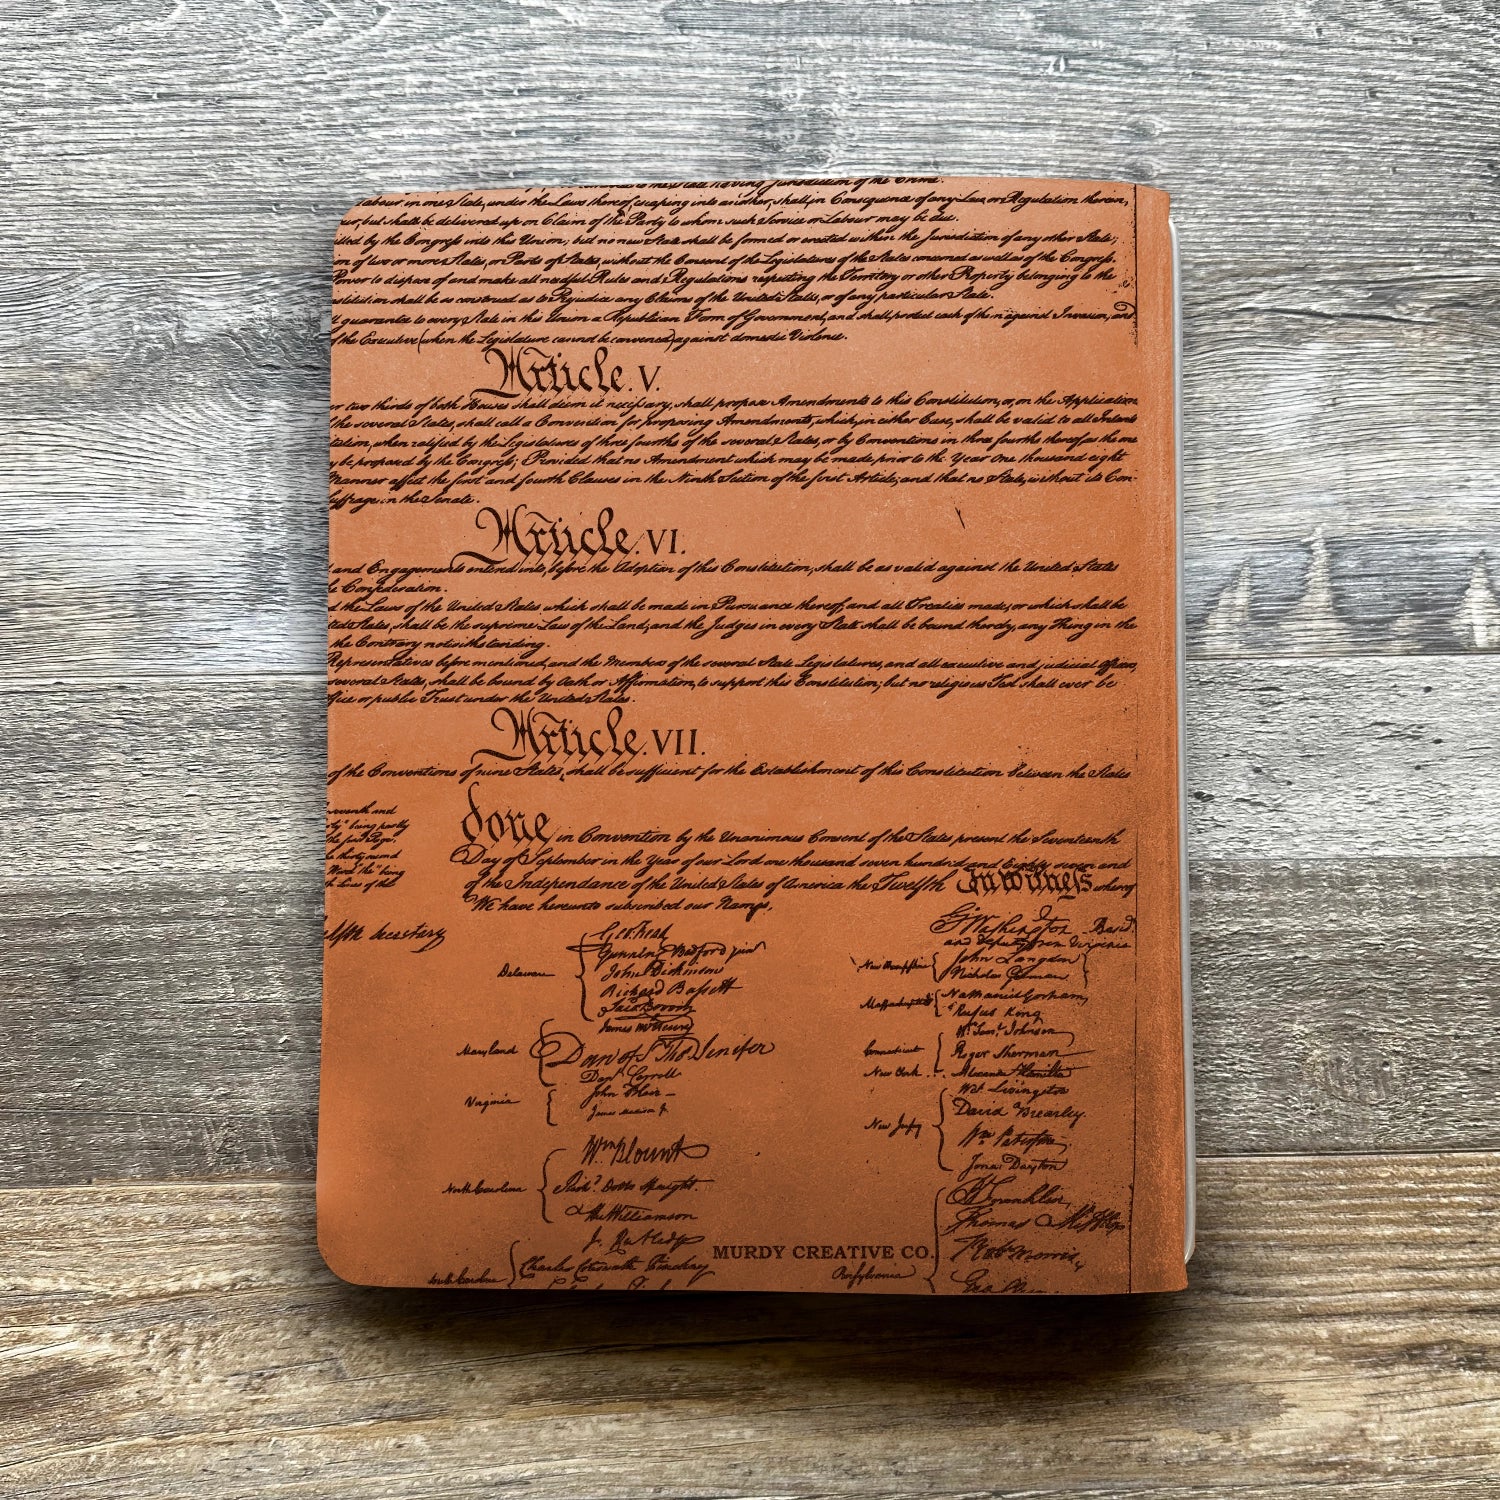 to the State having Jurisdiction of the Crime.
Labour in one State, under the Laws thereof, escaping into another, shall, in Consequence of any Law or Regulation therein,
or, but shall be delivered up on Claim of the Party to whom such Service or Labour may be due.
itted by the Congress into this Union; but no new State shall be formed or erected within the Jurisdiction of any other State;
on of two or more States, or Parts of States, without the Consent of the Legislatures of the States concerned as well as of the Congress.
Power to dispose of and make all needful Rules and Regulations respecting the Territory or other Property belonging to the
nstitution shall be so construed as to Prejudice any Claims of the United States, or of any particular State.
l guarantee to every State in this Union a Republican Form of Government, and shall protect each of them against Invasion; and
of the Executive (when the Legislature cannot be convened) against domestic Violence.
Article. V.
er two thirds of both Houses shall deem it necessary, shall propose Amendments to this Constitution, or, on the Application
the several States, shall call a Convention for proposing Amendments, which, in either Case, shall be valid to all Intents
tution, when ratified by the Legislatures of three fourths of the several States, or by Conventions in three fourths thereof, as the one
y be proposed by the Congress; Provided that no Amendment which may be made prior to the Year One thousand eight
Manner affect the first and fourth Clauses in the Ninth Section of the first Article; and that no State, without its Con-
uffrage in the Senate.
Article. VI.
and Engagements entered into, before the Adoption of this Constitution, shall be as valid against the United States
e Confederation.
d the Laws of the United States which shall be made in Pursuance thereof; and all Treaties made, or which shall be
ted States, shall be the supreme Law of the Land; and the Judges in every State shall be bound thereby, any Thing in the
the Contrary notwithstanding.
Representatives before mentioned, and the Members of the several State Legislatures, and all executive and judicial Officers,
several States, shall be bound by Oath or Affirmation, to support this Constitution; but no religious Test shall ever be
ffice or public Trust under the United States.
Article. VII.
of the Conventions of nine States, shall be sufficient for the Establishment of this Constitution between the States
seventh and
ly" being partly
the first Page.
e thirty second
Word the" being
h Line of the
done in Convention by the Unanimous Consent of the States present the Seventeenth
Day of September in the Year of our Lord one thousand seven hundred and Eighty seven and
of the Independance of the United States of America the Twelfth In witness whereof
We have hereunto subscribed our Names,
Secretary
Delaware
Geo: Read
Gunning Bedford jun
John Dickinson
Richard Bassett
Jaco: Broom
Maryland
James McHenry
Dan of St Thos Jenifer
Danl Carroll
Virginia
John Blair—
James Madison Jr.
North Carolina
Wm Blount
Richd Dobbs Spaight.
Hu Williamson
South Carolina
J. Rutledge
Charles Cotesworth Pinckney
Go Washington
and deputy from Virginia
New Hampshire
John Langdon
Nicholas Gilman
Massachusetts
Nathaniel Gorham
Rufus King
Connecticut
Wm Saml Johnson
Roger Sherman
New York
Alexander Hamilton
New Jersey
Wil: Livingston
David Brearley.
Wm Paterson.
Jona: Dayton
Pensylvania
B Franklin
Thomas Mifflin
Robt Morris
Geo. Clymer
MURDY CREATIVE CO.